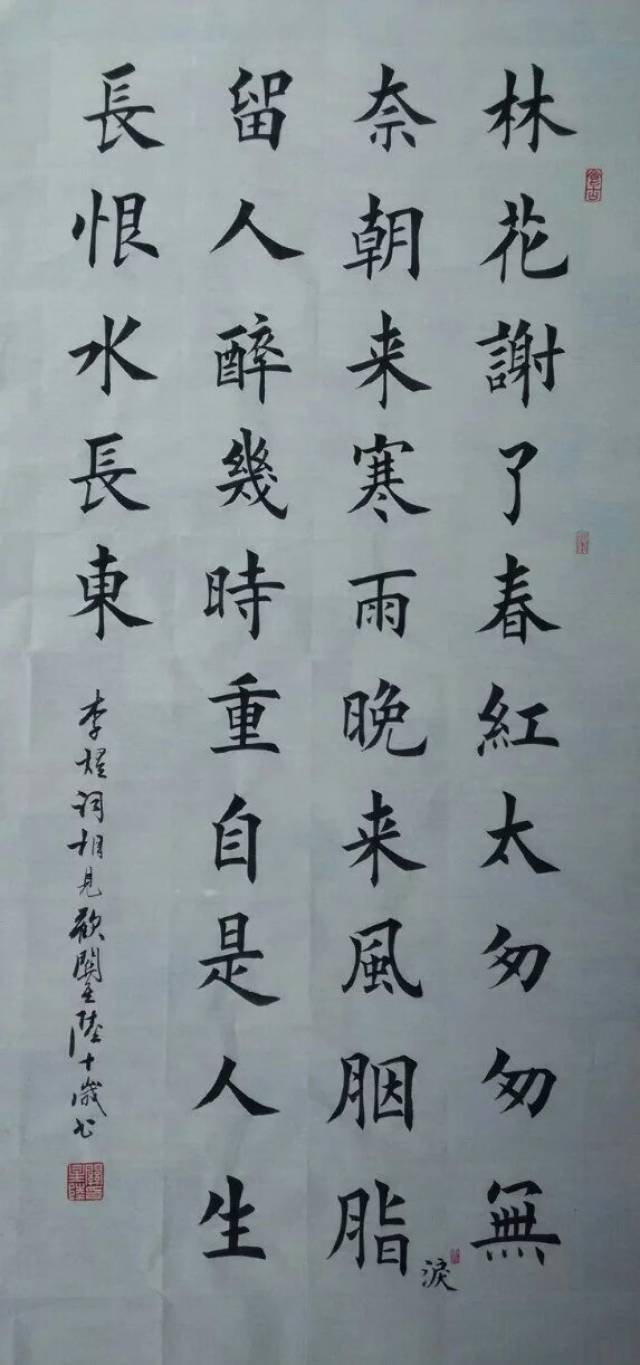 林花謝了春紅太匆匆無
奈朝来寒雨晚来風胭脂
淚
留人醉幾時重自是人生
長恨水長東
李煜词相見歡關星陸十歲书